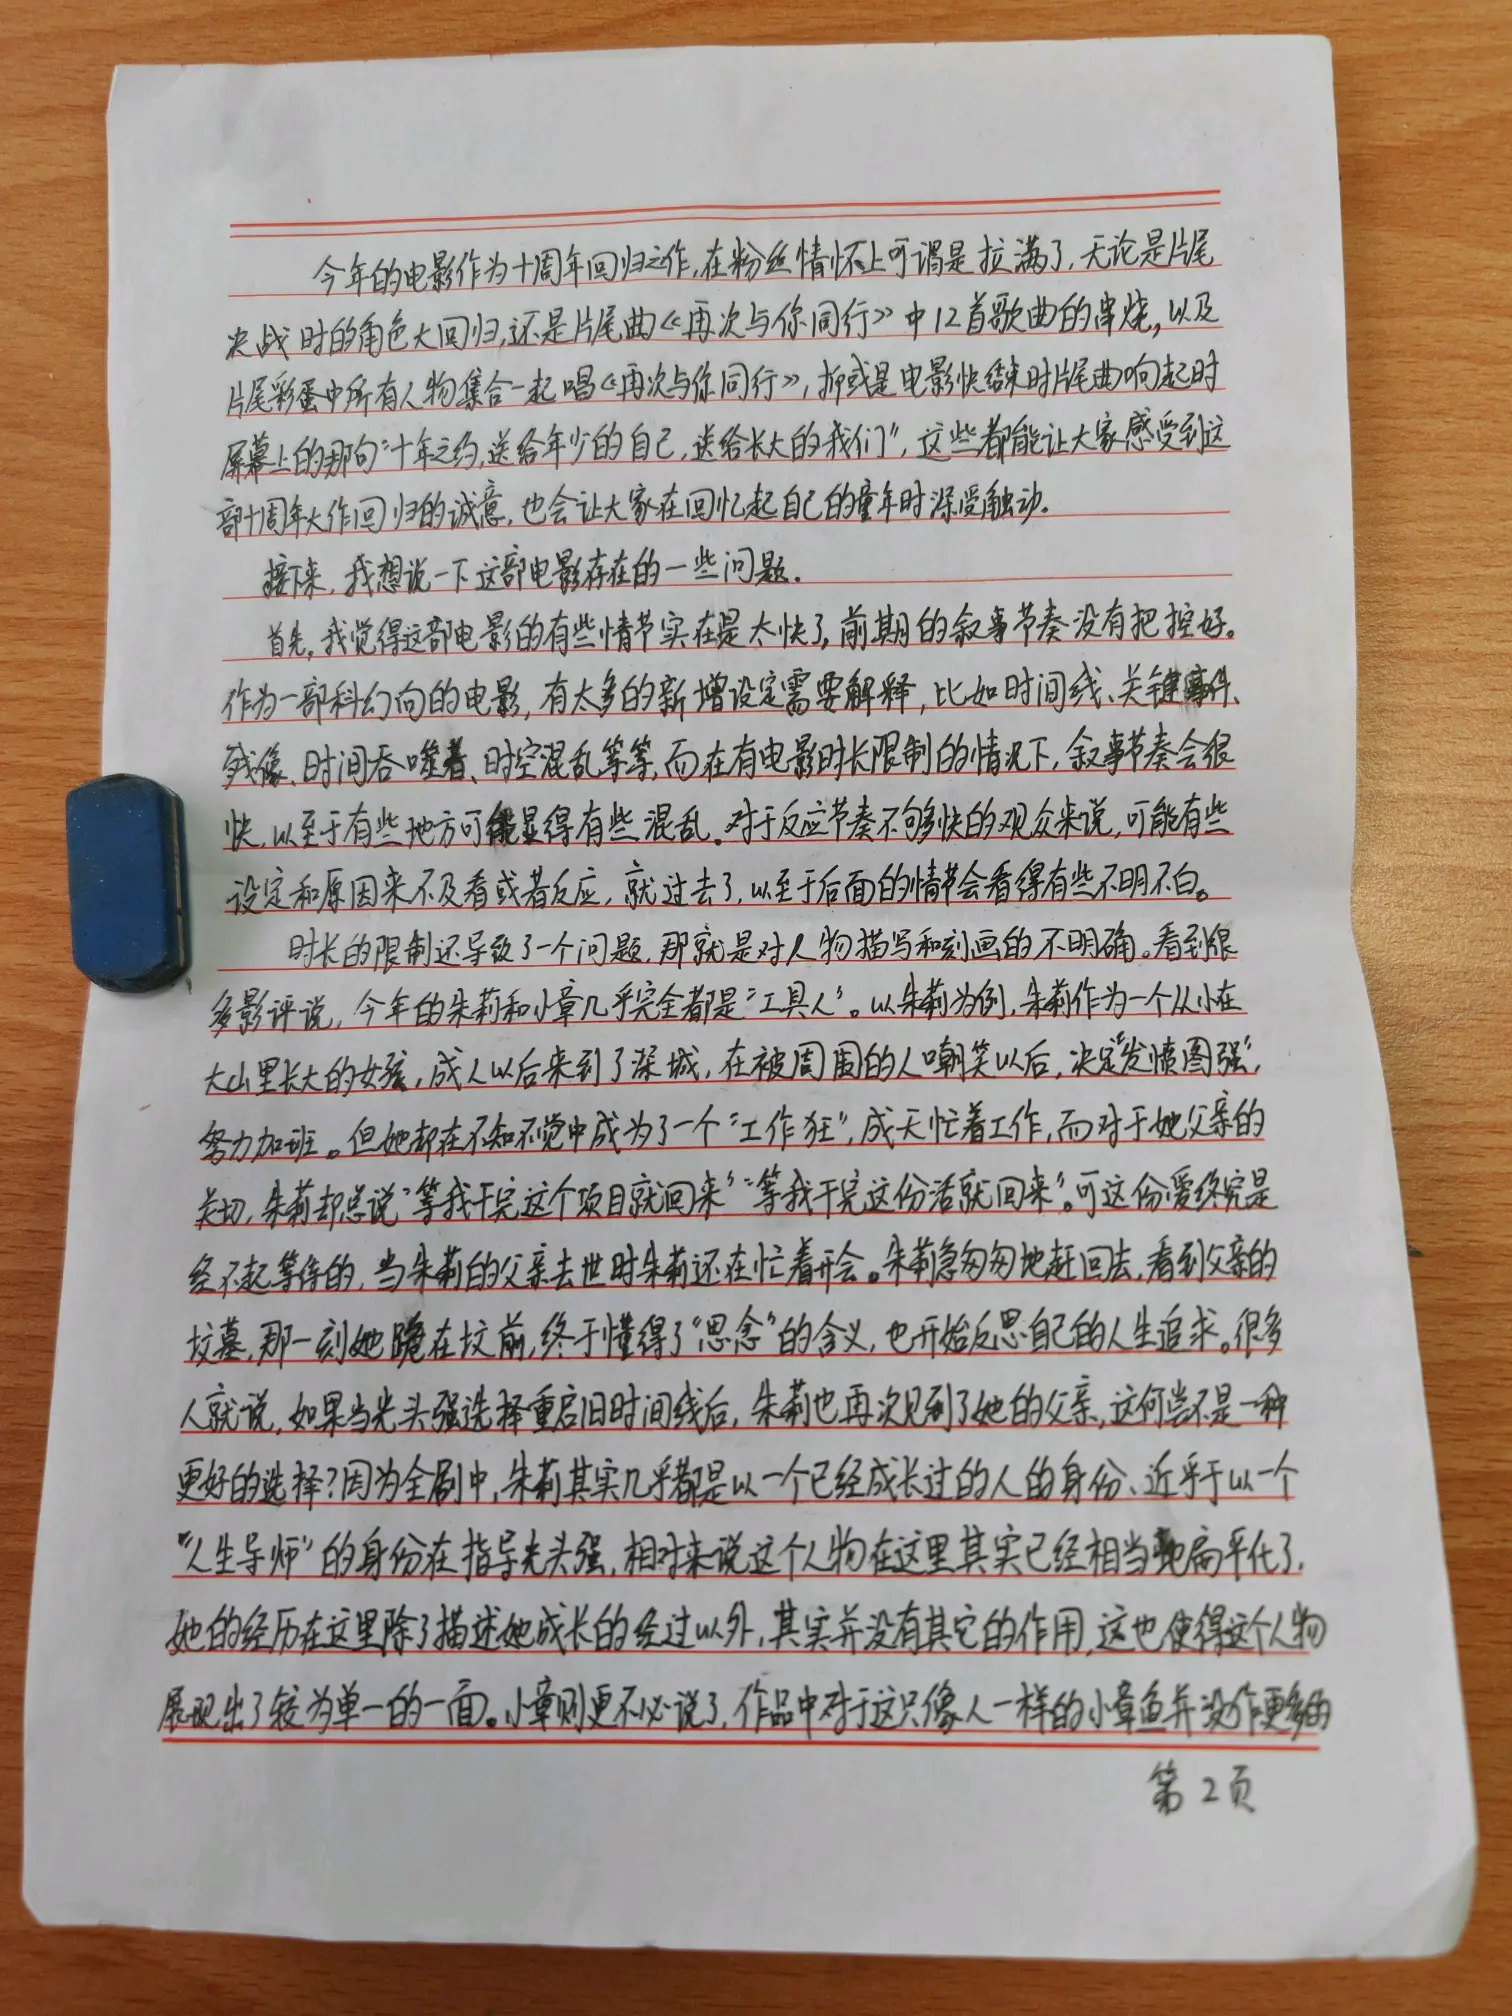 今年的电影作为十周年回归之作,在粉丝情怀上可谓是拉满了,无论是片尾
决战时的角色大回归,还是片尾曲《再次与你同行》中12首歌曲的串烧,以及
片尾彩蛋中所有人物集合一起唱《再次与你同行》,抑或是电影快结束时片尾曲响起时
屏幕上的那句“十年之约,送给年少的自己,送给长大的我们”,这些都能让大家感受到这
部十周年大作回归的诚意,也会让大家在回忆起自己的童年时深受触动.
接下来,我想说一下这部电影存在的一些问题.
首先,我觉得这部电影的有些情节实在是太快了,前期的叙事节奏没有把控好。
作为一部科幻向的电影,有太多的新增设定需要解释,比如时间线、关键事件、
残像、时间吞噬者、时空混乱等等,而在有电影时长限制的情况下,叙事节奏会很
快,以至于有些地方可能显得有些混乱。对于反应节奏不够快的观众来说,可能有些
设定和原因来不及看或者反应,就过去了,以至于后面的情节会看得有些不明不白。
时长的限制还导致了一个问题,那就是对人物描写和刻画的不明确。看到很
多影评说,今年的朱莉和小章几乎完全都是“工具人”。以朱莉为例,朱莉作为一个从小在
大山里长大的女孩,成人以后来到了深城,在被周围的人嘲笑以后,决定“发愤图强”,
努力加班。但她却在不知不觉中成为了一个“工作狂”,成天忙着工作,而对于她父亲的
关切,朱莉却总说“等我干完这个项目就回来”“等我干完这份活就回来”。可这份爱终究是
经不起等待的,当朱莉的父亲去世时朱莉还在忙着开会。朱莉急匆匆地赶回去,看到父亲的
坟墓,那一刻她跪在坟前,终于懂得了“思念”的含义,也开始反思自己的人生追求。很多
人就说,如果当光头强选择重启旧时间线后,朱莉也再次见到了她的父亲,这何尝不是一种
更好的选择?因为全剧中,朱莉其实几乎都是以一个已经成长过的人的身份、近乎于以一个
“人生导师”的身份在指导光头强,相对来说这个人物在这里其实已经相当地扁平化了,
她的经历在这里除了描述她成长的经过以外,其实并没有其它的作用,这也使得这个人物
展现出了较为单一的一面。小章则更不必说了,作品中对于这只像人一样的小章鱼并没作更多的
第2页